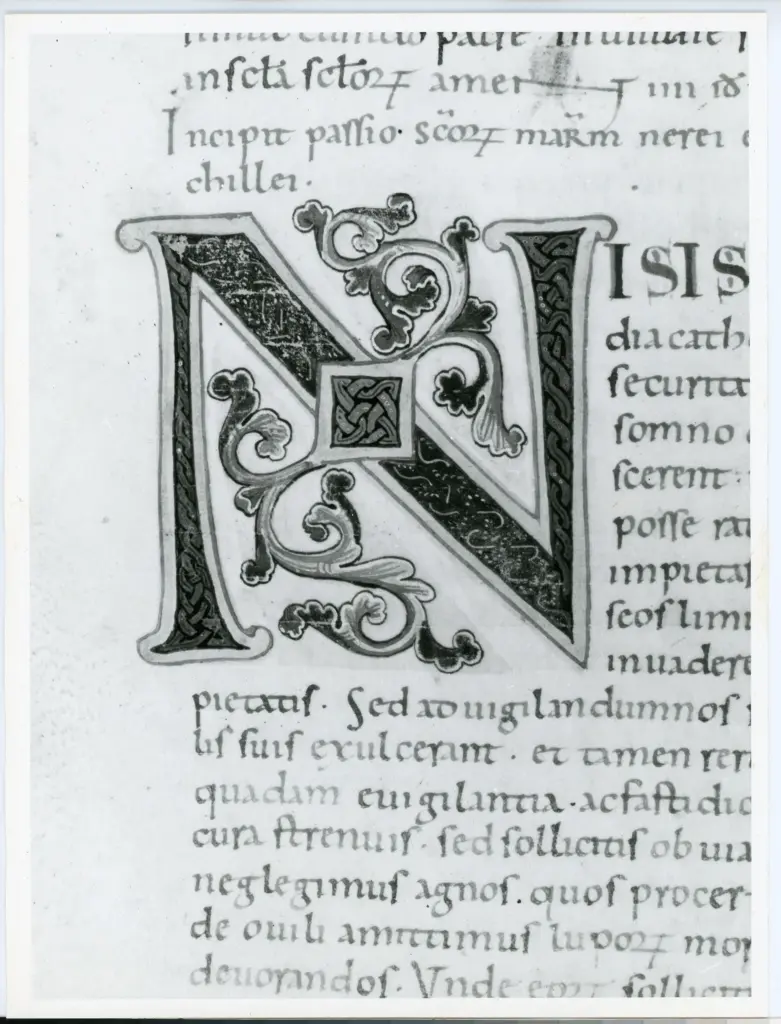 in sctā sctoꝝ amen iiii id
Incipit passio scōꝝ marm nerei
chillei.
NISIS
dia cath
securita
somno
scerent.
posse ra
impieta
seos limi
inuadere
pietatis. Sed ad uigilandum nos
lis suis exulcerant. et tamen rer
quadam euigilantia. ac fastidio
cura strenuis. sed sollicitis ob uia
neglegimus agnos. quos procer-
de ouili amittimus lupoꝝ mor
deuorandos. Vnde eoꝝ sollicit